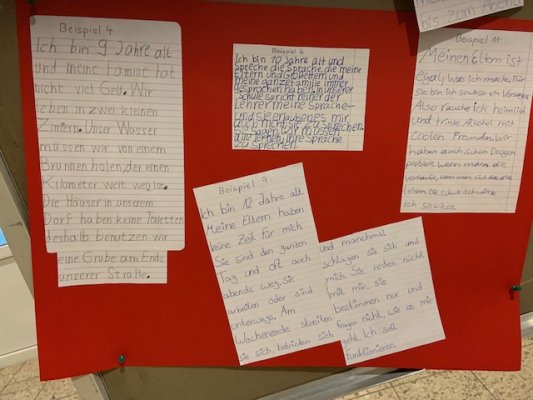 Beispiel 4
Ich bin 9 Jahre alt
und meine Familie hat
nicht viel Gelt. Wir
leben in zwei kleinen
Zimern. Unser Wasser
müssen wir von einem
Brunnen holen, der einen
Kilometer weit weg ist.
Die Häuser in unserem
Dorf haben keine Toiletten
deshalb benutzen wir
eine Grube am Ende
unserer Straße.
Beispiel 6
Ich bin 10 Jahre alt und
spreche die Sprache, die meine
Eltern und Großeltern und
meine ganze Familie immer
gesprochen haben. In unserer
Schule spricht keiner der
Lehrer meine Sprache
und sie erlauben es mir
auch nicht sie zu sprechen.
Sie sagen wir müssen
alle lernen ihre Sprache
zu sprechen.
Beispiel 9:
Ich bin 12 Jahre alt.
Meine Eltern haben
keine Zeit für mich.
Sie sind den ganzen
Tag und oft auch
abends weg, sie
arbeiten oder sind
unterwegs. Am
Wochenende streiten
sie sich, betrinken sich
und manchmal
schlagen sie sich und
mich. Sie reden nicht
mit mir, sie
bestimmen nur und
fragen nicht, wie es mir
geht. Ich soll
funktionieren.
Beispiel 11:
Meinen Eltern ist
egal, was ich mache. Für
sie bin ich sowieso ein
Also rauche ich heimlich
und trinke Alkohol mit
coolen Freunden. Wir
haben auch schon Drogen
probiert. Wenn man die
wenn man sich
leisten. Die Schule schwänze
ich sowieso.
bis zum Abend